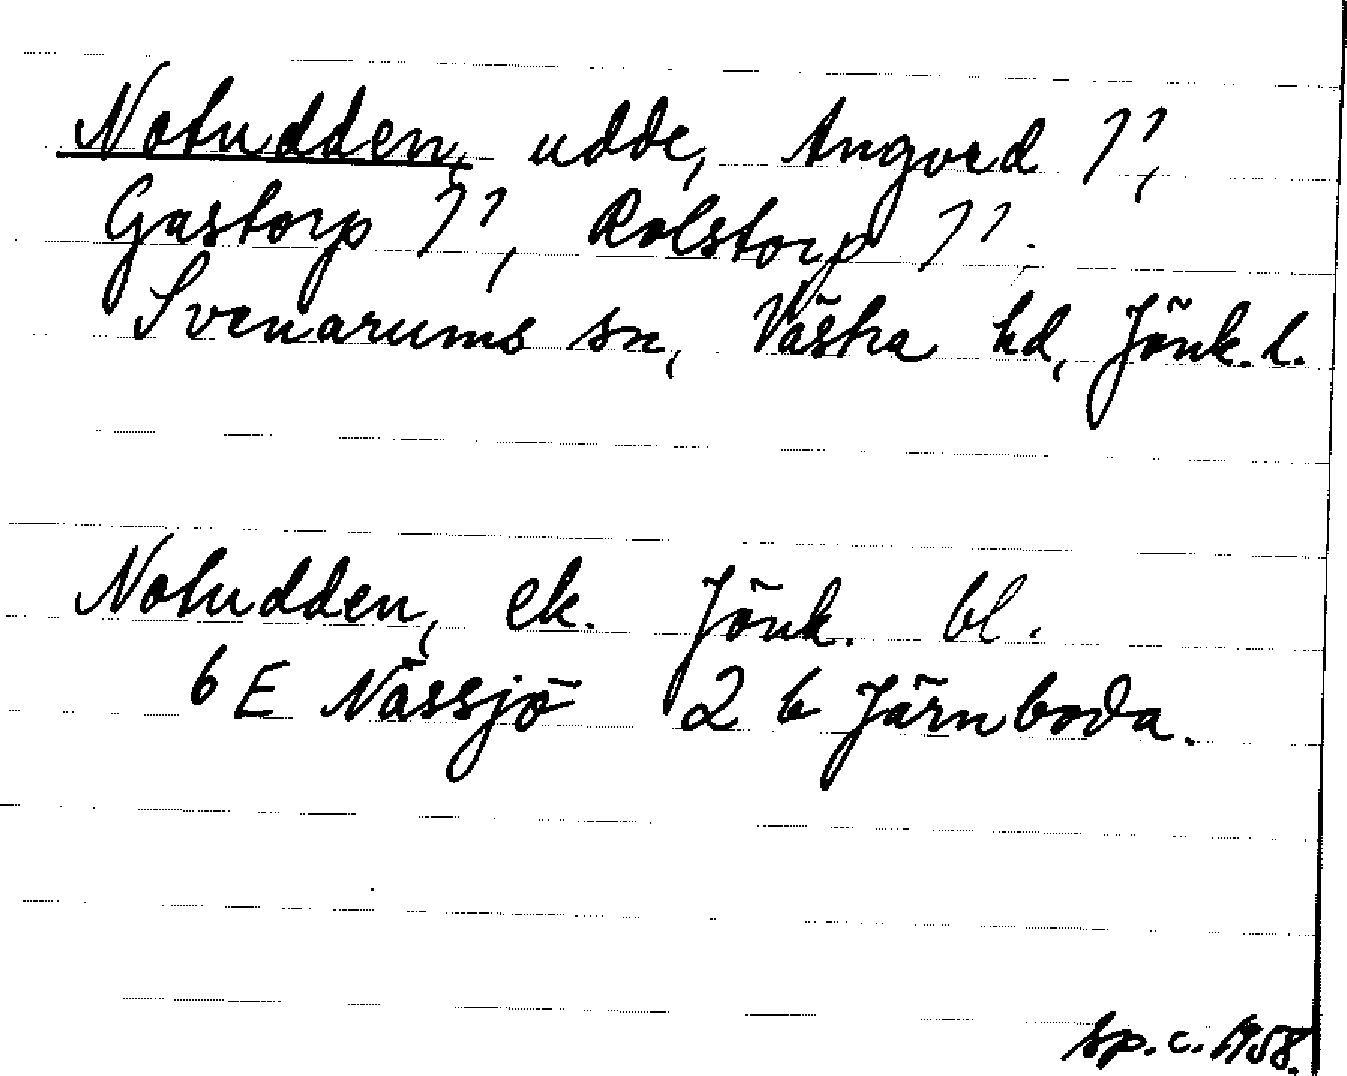 Notudden, udde, Angord 1¹,
Gastorp 1¹, Rolstorp 1¹.
Svenarums sn, Västra hd, Jönk. l.
Notudden, ek. Jönk. bl.
6 E Nässjö 2 b Järnboda.
sp. c. 1958.